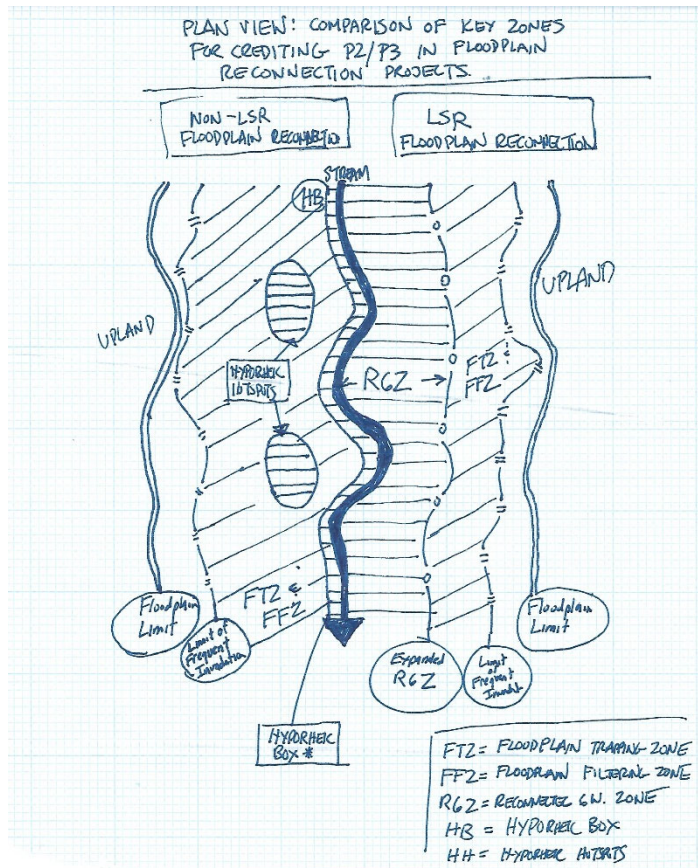 PLAN VIEW: COMPARISON OF KEY ZONES
FOR CREDITING P2/P3 IN FLOODPLAIN
RECONNECTION PROJECTS.
NON-LSR
FLOODPLAIN RECONNECTIO
LSR
FLOODPLAIN RECONNECTION
STREAM
HB
UPLAND
UPLAND
HYPORHEIC
HOTSPOTS
RGZ
FTZ &
FFZ
FTZ &
FFZ
Floodplain
Limit
Limit of
Frequent
Inundation
Expanded
RGZ
Limit
of
Frequent
Inundat.
Floodplain
Limit
HYPORHEIC
BOX *
FTZ = FLOODPLAIN TRAPPING ZONE
FFZ = FLOODPLAIN FILTERING ZONE
RGZ = RECONNECTED GW. ZONE
HB = HYPORHEIC BOX
HH = HYPORHEIC HOTSPOTS